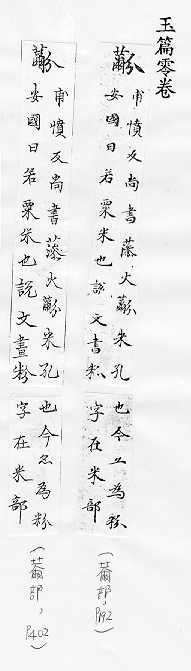 玉篇零卷
黺
甫憤反尚書藻火黺米孔
安國曰若粟米也說文書粉
也今為粉
字在米部
(黹部,P192)
黺
甫憤反尚書藻火黺米孔
安國曰若粟米也說文畫粉
也今為粉
字在米部
(黹部,P402)